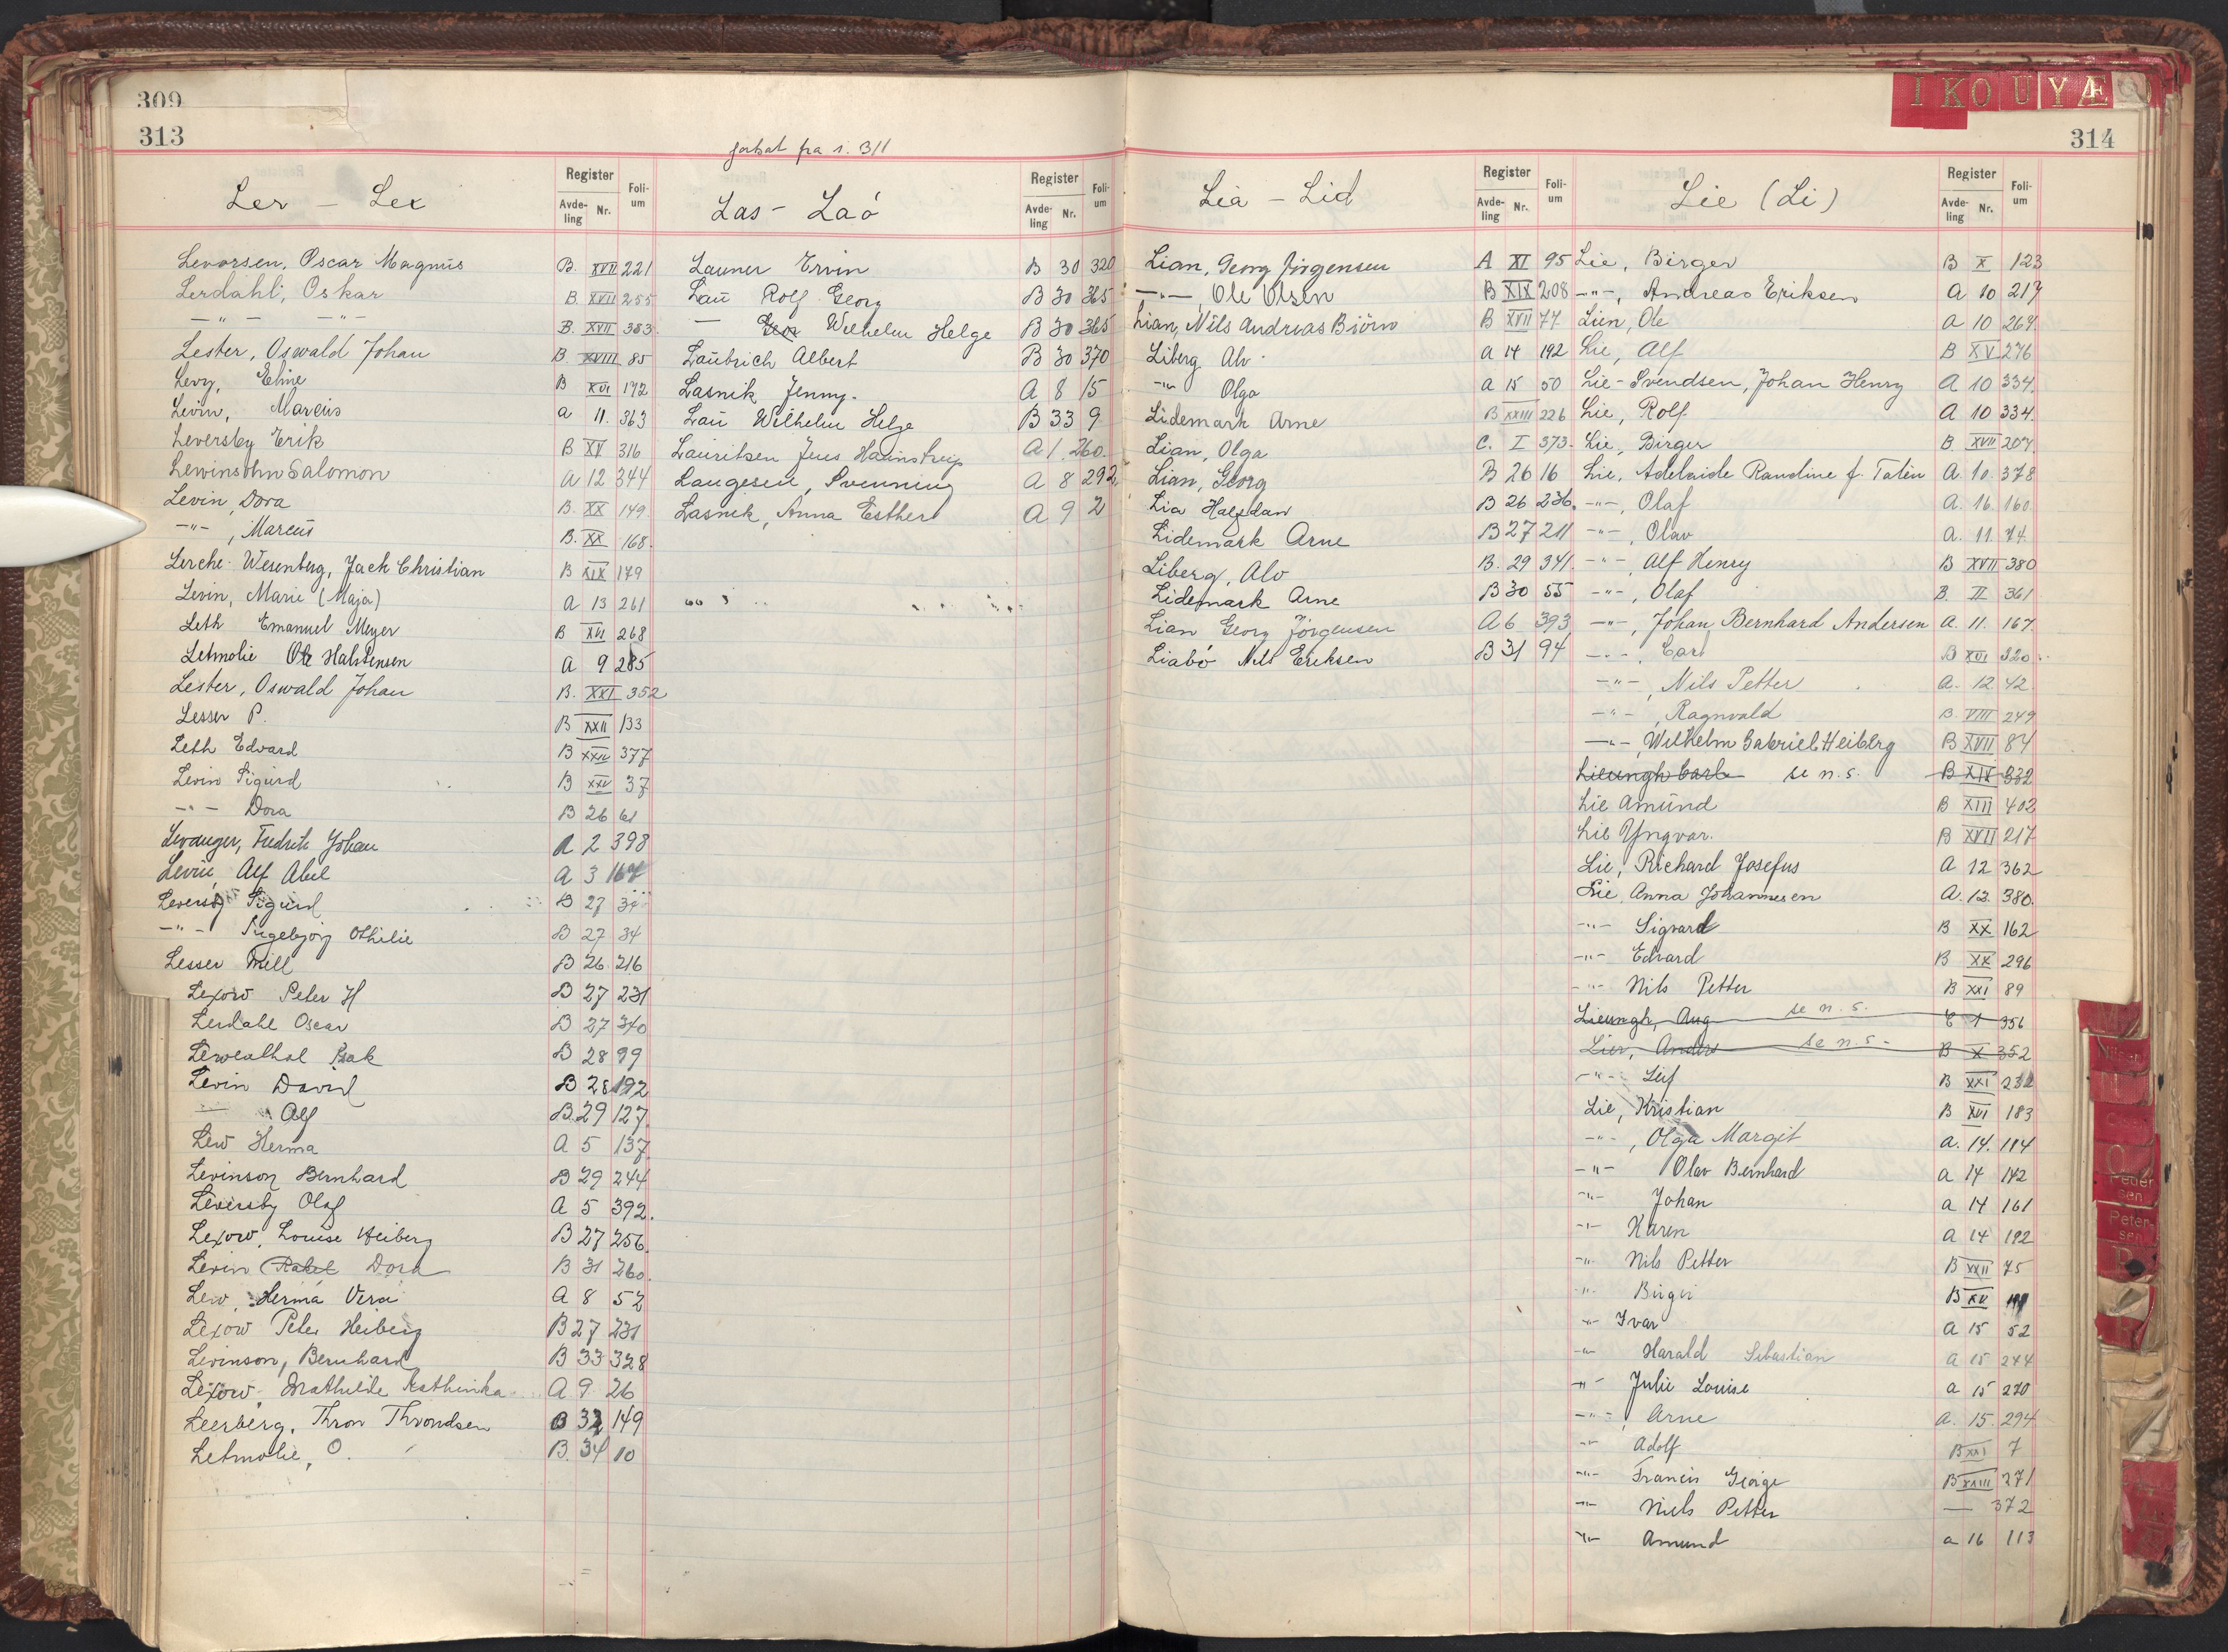 309
313
fortsat fra s. 311
Ler - Lex
Register
Avde-ling Nr.
Foli-um
Levorsen, Oscar Magnus B. XVII 221
Lerdahl, Oskar B. XVII 255
-"- -"- B. XVII 383
Lester, Oswald Johan B. XVIII 85
Levy, Eline B XVI 172
Levin, Marcus a 11. 363
Leversby Erik B XV 316
Lewinsohn Salomon a 12 344
Levin, Dora B. XX 149
-"-, Marcus B. XX 168.
Lerche-Wesenberg, Jack Christian B XIX 179
Levin, Marie (Maja) A 13 261
Leth Emanuel Meyer B XVI 268
Letmolie Ole Halstensen A 9 285
Lester, Oswald Johan B. XXI 352
Lesser P. B XXII 133
Leth Edvard B XXIV 377
Levin Sigurd B XXV 37
-"- Dora B 26 61
Levanger, Fredrik Johan A 2 398
Levin, Alf Abel A 3 167
Leversby Sigurd B 27 34
-"- Ingebjörg Othilie B 27 34
Lesser Mill B 26 216
Lexow Peter H B 27 231
Lerdahl Oscar B 27 340
Lewenthal Isak B 28 99
Levin David B 28 192
— Alf B. 29 127.
Lew Herma A 5 137
Levinson Bernhard B 29 244
Leversby Olaf A 5 392.
Lexow, Louise Heiberg B 27 256.
Levin Rakel Dora B 31 260.
Lew, Herma Vera A 8 52
Lexow Peter Heiberg B 27 231
Levinson, Bernhard B 33 328
Lexow, Mathilde Kathinka A 9 26
Leerberg, Thron Throndsen B 32 149
Letmolie, O. B. 34 10
Las - Laó
Register
Avde-ling Nr.
Foli-um
Launer Ervin B 30 320
Lau Rolf Georg B 30 365
— Wilhelm Helge B 30 365
Laubrich Albert B 30 370
Lasnik Jenny. A 8 15
Lau Wilhelm Helge B 33 9
Lauritsen Jens A 1. 260.
Laugesen, Svenning A 8 292
Lasnik, Anna Esther A 9 2
Lia - Lid
Register
Avde-ling Nr.
Foli-um
Lian, Georg Jörgensen A XI 95
-"-, Ole Olsen B XIX 208
Lian, Nils Andreas Biörn B XVII 77
Liberg Alv a 14 192
-"- Olga a 15 50
Lidemark Arne B XXIII 226
Lian, Olga C. I 373.
Lian, Georg B 26 16
Lia Halfdan B 26 236.
Lidemark Arne B 27 211
Liberg, Alv B. 29 341.
Lidemark Arne B 30 55
Lian Georg Jörgensen A 6 393
Liabö Nils Eriksen B 31 94
I K O U Y Æ
314
Lie (Li)
Register
Avde-ling Nr.
Foli-um
Lie, Birger B X 123
-"-, Andreas Eriksen A 10 217
Lien, Ole A 10 264.
Lie, Alf B XV 276
Lie-Svendsen, Johan Henry A 10 334.
Lie, Rolf A 10 334.
Lie, Birger B. XVII 207.
Lie, Adelaide Randine f. Talén A. 10. 378
-"-, Olaf A. 16. 160
-"-, Olav a. 11. 74
-"-, Alf Henry B XVII 380
-"-, Olaf B. II 361
-"-, Johan Bernhard Andersen a. 11. 167.
-"-, Carl B XVI 320
-"-, Nils Petter a. 12 42
-"-, Ragnvald B. VIII 249
-"-, Wilhelm Gabriel Heiberg B XVII 84
Lieungh Carl se n. s. B XIX 332
Lie Amund B XIII 402
Lie Yngvar. B XVII 217
Lie, Richard Josefus A 12 362
Lie Anna Johannesen a. 12. 380.
-"- Sigvard B XX 162
-"- Edvard B XX 296
-"- Nils Petter B XXI 89
Lieungh, Aug se n. s. C 1 356
Lier, Anders se n. s. B X 352
-"- Leif B XXI
Lie, Kristian B XVI 183
-"-, Olga Margit a. 14. 114
-"- Olav Bernhard a 14 142
-"- Johan a 14 161
-"- Karen a 14 192
-"- Nils Petter B XXII 75
-"- Birger B XV
-"- Ivar a 15 52
-"- Harald Sebastian a 15 244
-"- Julie Louise a 15 270
-"-, Arne a. 15. 294
-"- Adolf B XXI 7
-"- Francis George B XXIII 271
-"- Niels Petter — 372
-"- Amund a 16 113
Nilsen
Peder-sen
Peter-sen